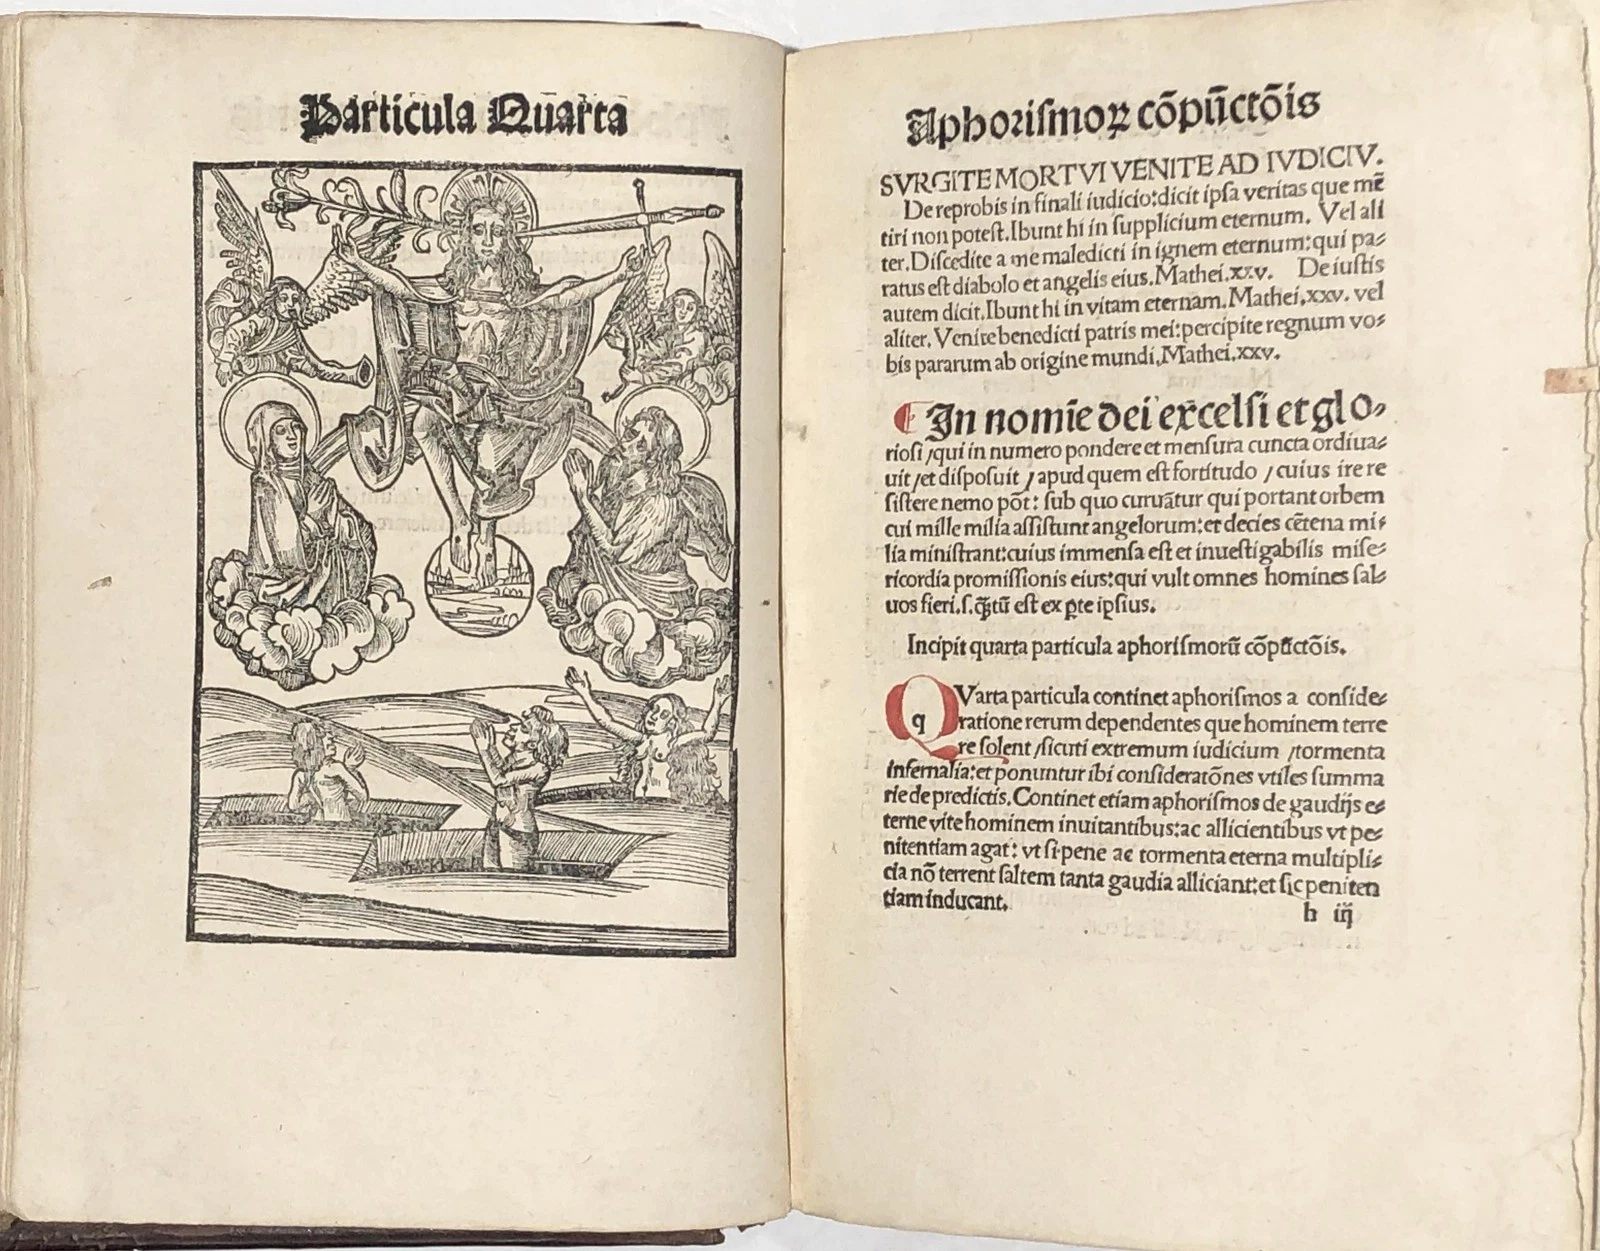 Particula Quarta
Aphoriſmoꝝ cõpũctõis
SVRGITE MORTVI VENITE AD IVDICIV.
De reprobis in finali iudicio:dicit ipſa veritas que mẽ
tiri non poteſt.Ibunt hi in ſupplicium eternum. Vel ali
ter.Diſcedite a me maledicti in ignem eternum:qui pa⸗
ratus eſt diabolo et angelis eius.Mathei.xxv. De iuſtis
autem dicit.Ibunt hi in vitam eternam.Mathei.xxv. vel
aliter. Venite benedicti patris mei:percipite regnum vo⸗
bis pararum ab origine mundi.Mathei.xxv.
¶ In nomĩe dei excelſi et glo⸗
rioſi /qui in numero pondere et menſura cuncta ordiua⸗
uit /et diſpoſuit / apud quem eſt fortitudo / cuius ire re
ſiſtere nemo põt: ſub quo curuãtur qui portant orbem
cui mille milia aſſiſtunt angelorum:et decies cẽtena mi⸗
lia miniſtrant:cuius immenſa eſt et inueſtigabilis miſe⸗
ricordia promiſſionis eius:qui vult omnes homines ſal⸗
uos fieri.ſ.q̃ꝫtũ eſt ex ꝑte ipſius.
Incipit quarta particula aphoriſmorũ cõpũctõis.
QVarta particula continet aphoriſmos a conſide⸗
q ratione rerum dependentes que hominem terre
re ſolent /ſicuti extremum iudicium /tormenta
infernalia:et ponuntur ibi conſideratõnes vtiles ſumma
rie de predictis. Continet etiam aphoriſmos de gaudijs e⸗
terne vite hominem inuitantibus:ac allicientibus vt pe⸗
nitentiam agat: vt ſi pene ac tormenta eterna multipli⸗
cia nõ terrent ſaltem tanta gaudia alliciant:et ſic peniten
tiam inducant.
h iij